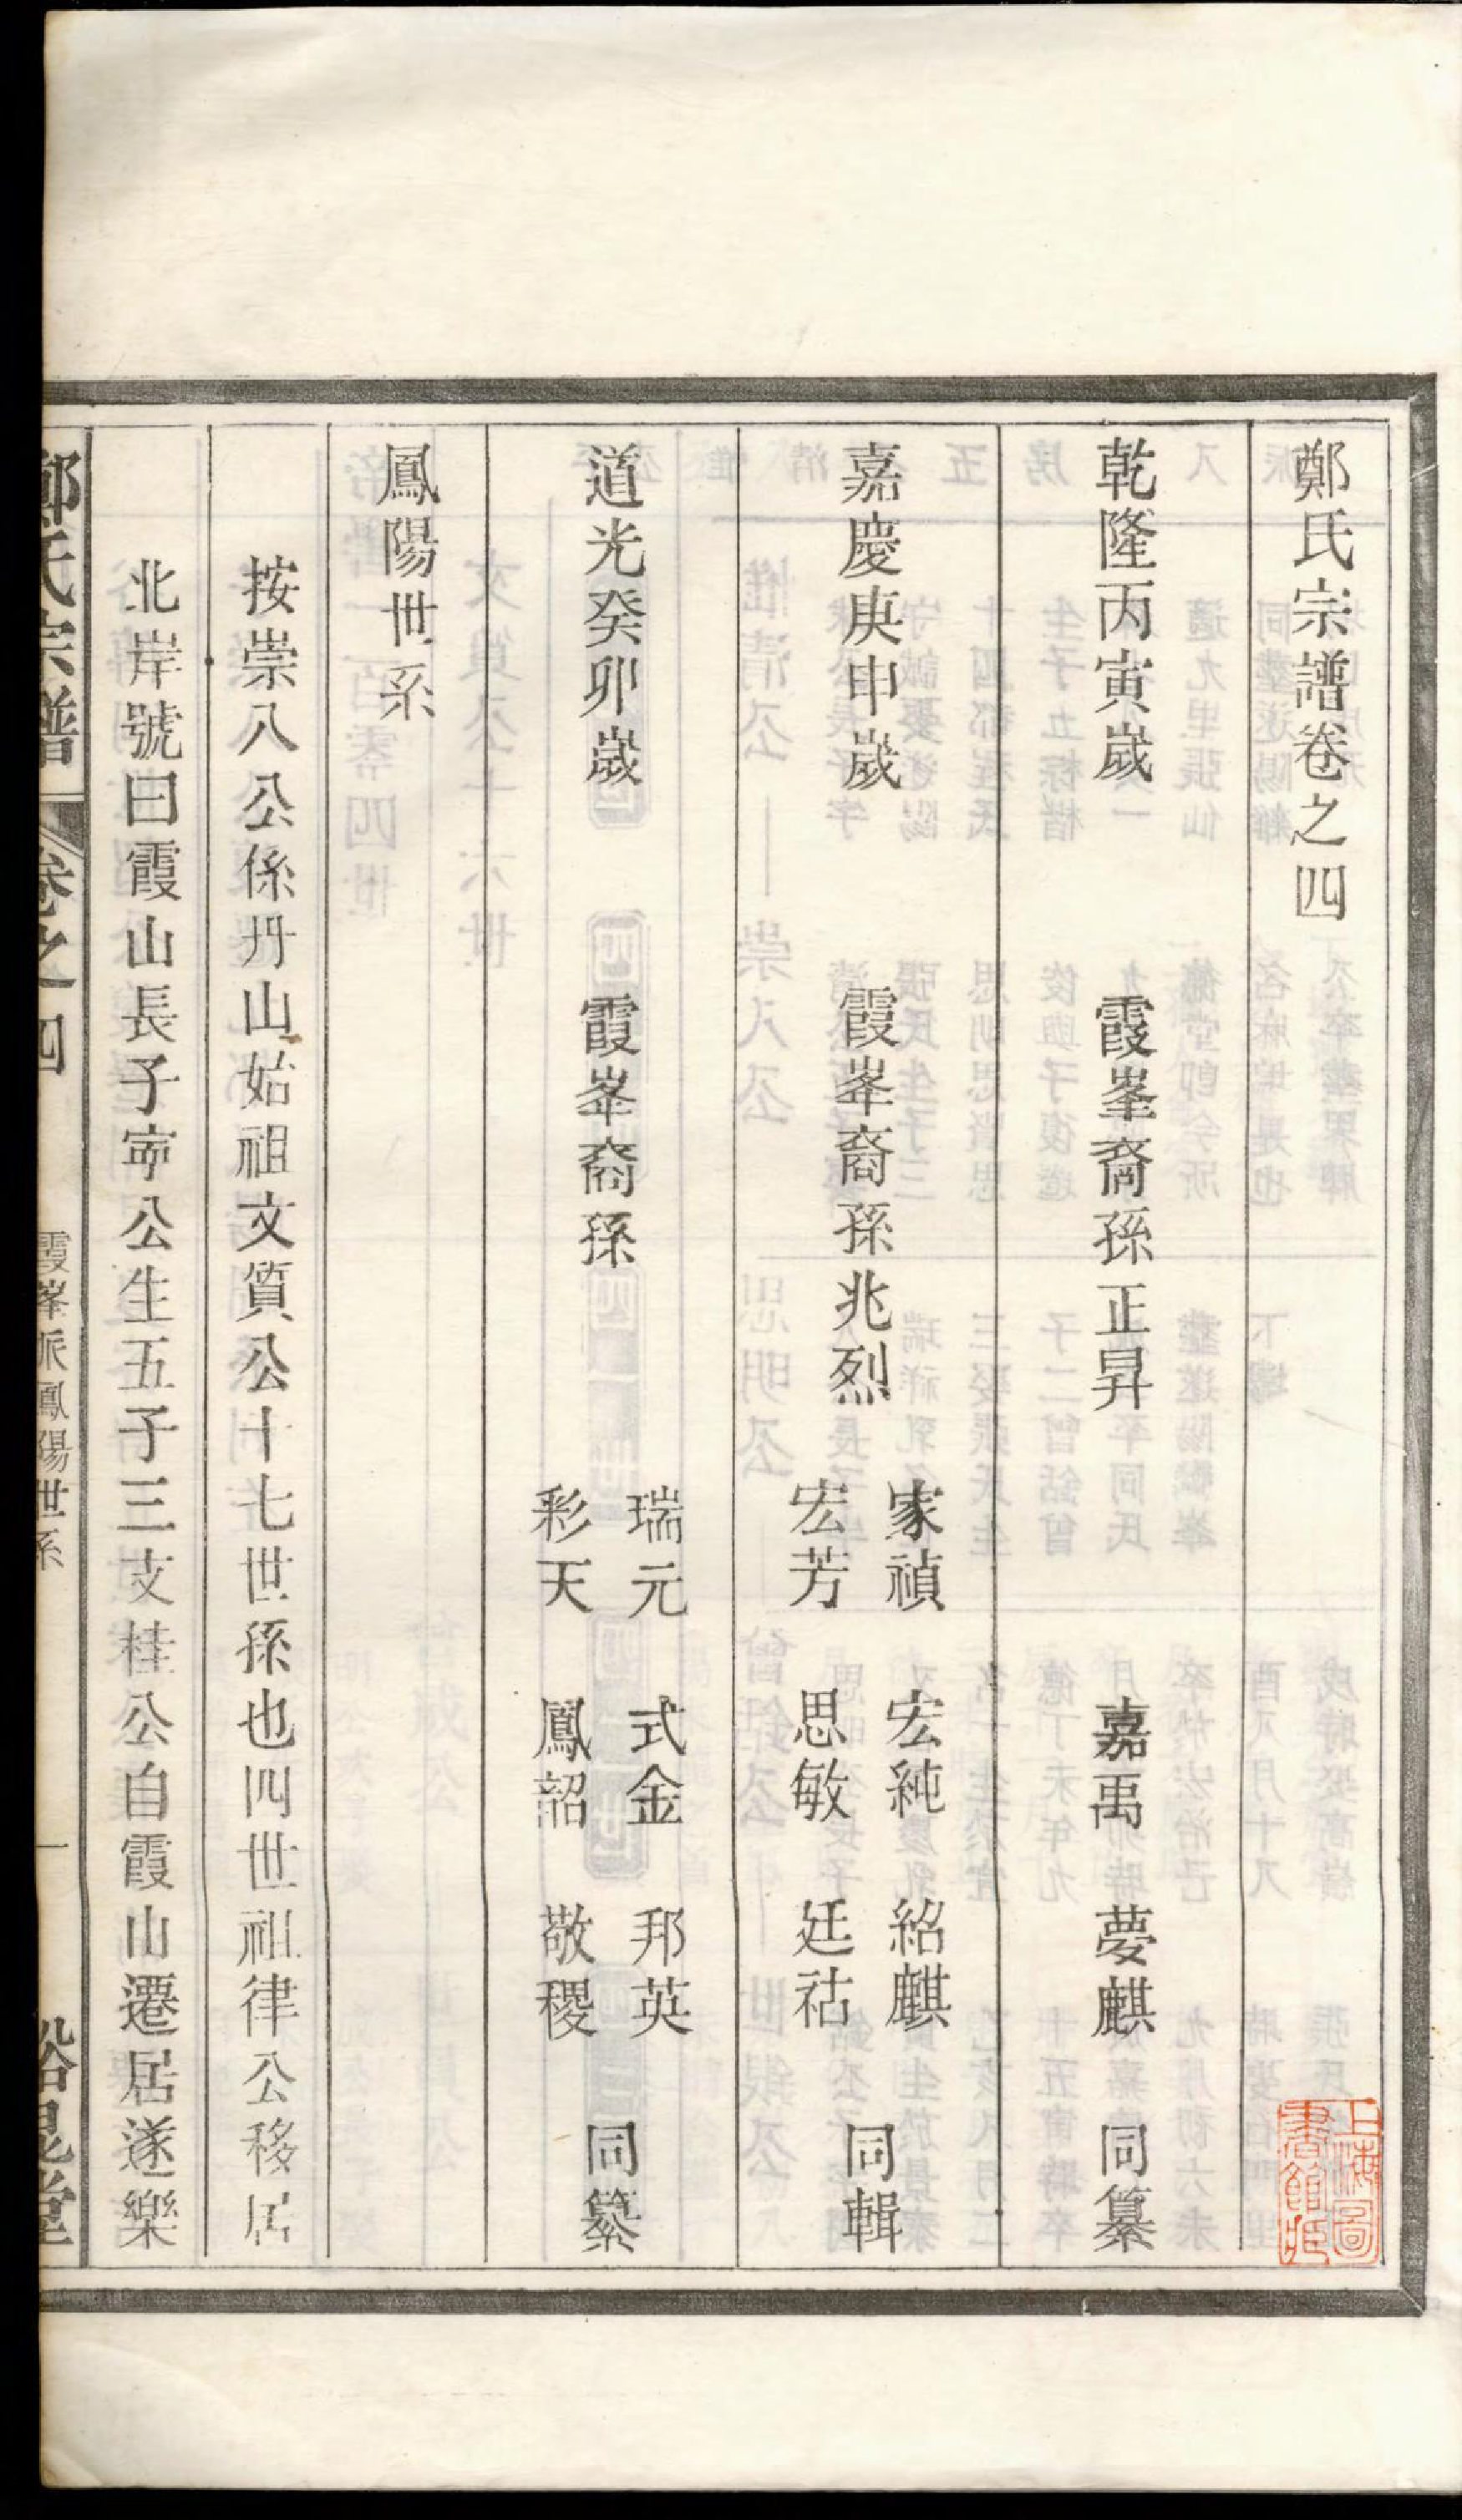 鄭氏宗譜卷之四
乾隆丙寅歲 霞峯裔孫正昇 嘉禹 夢麒 同纂
嘉慶庚申歲 霞峯裔孫兆烈 家禎 宏純 紹麒 同輯
宏芳 思敏 廷祜
道光癸卯歲 霞峯裔孫 瑞元 式金 邦英 同纂
彩天 鳳韶 敬稷
鳳陽世系
按崇八公係丹山始祖文質公十七世孫也四世祖律公移居
北岸號曰霞山長子寧公生五子三支桂公自霞山遷居遂樂
鄭氏宗譜 卷之四 霞峯派鳳陽世系 一 裕昆堂
上海圖書館藏